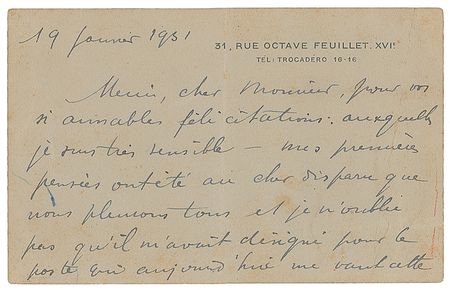 19 Janvier 1931
31, RUE OCTAVE FEUILLET. XVIe
TEL: TROCADERO 16-16
Merci, cher Monsieur, pour vos
si aimables félicitations. auxquelles
je suis très sensible — mes premières
pensées ont été au cher disparu que
nous pleurons tous et je n'oublie
pas qu'il m'avait désigné pour le
poste qui aujourd'hui me vaut cette